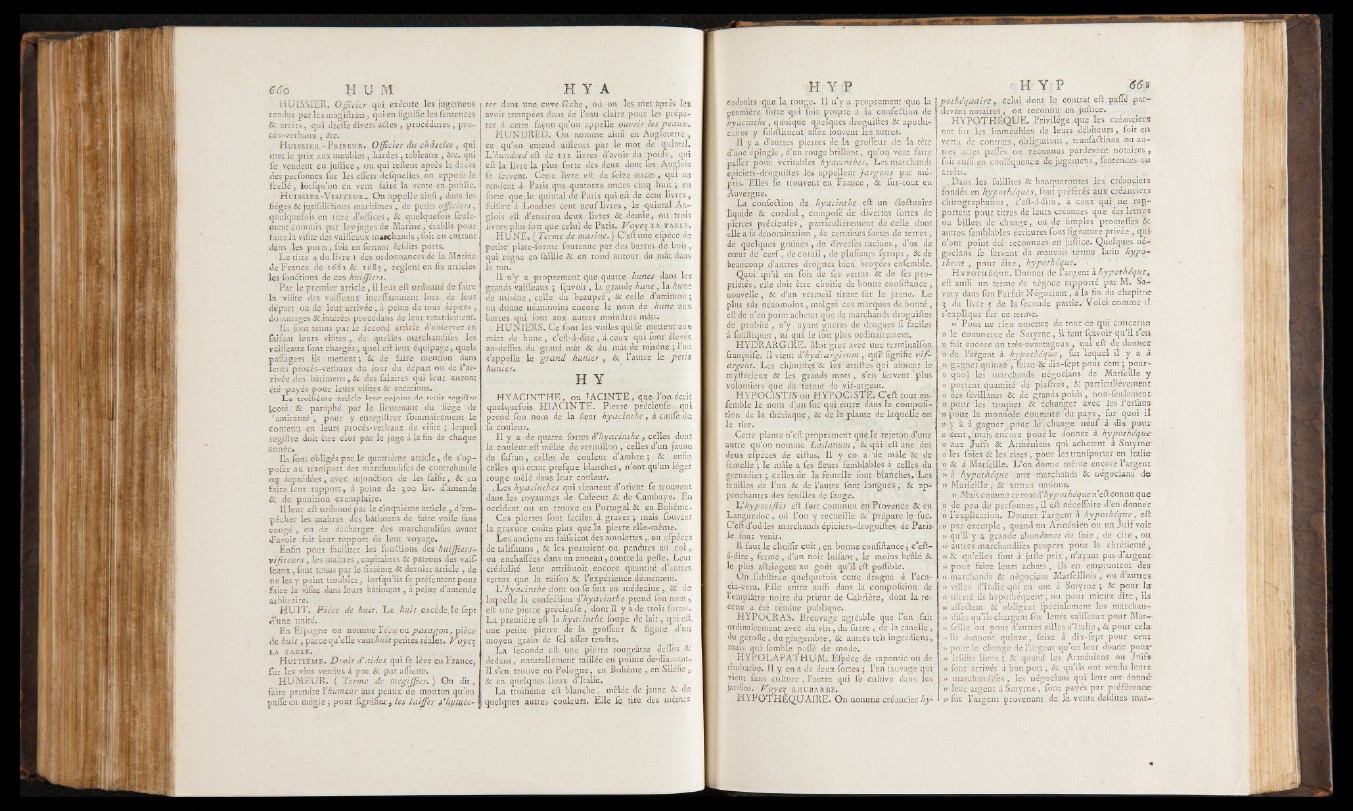 660 HUM
HUISSIER. Officier qui exécute les jugemens
rendus par les magiſtrats, qui en ſignifie les ſentences
& arrêts, qui dreſſe divers actes, procédures, pro-
cès-verbaux, &c.
HUISSIER-PRISEUR. Officier du châtelet, qui
met le prix aux meubles, hardes, tableaux, &c. qui
ſe vendent en juſtice, ou qui reſtent après le décès
des perſonnes ſur les effets deſquelles on appoſe le
ſcellé, lorſqu'on en veut faire la vente en public.
HUISSIER-VISITEUR. On appelle ainſi, dans les
ſiéges & juriſdictions maritimes, de petits officiers,
quelquefois en titre d'offices, & quelquefois ſeule-
ment commis par les juges de Marine, établis pour
faire la viſite des vaiſſeaux marchands, ſoit en entrant
dans les ports, ſoit en ſortant deſdits ports.
Le titre 4 du livre 1 des ordonnances de la Marine
de France de 1681 & 1685, reglent en ſix articles
les fonctions de ces huiſſiers.
Par le premier article, il leur eſt ordonné de faire
la viſite des vaiſſeaux inceſſamment lors de leur
départ ou de leur arrivée, à peine de tous dépens,
dommages & intérêts procédans de leur retardement.
Ils ſont tenus par le ſecond article d'obſerver en
faiſant leurs viſites, de quelles marchandiſes les
vaiſſeaux ſont chargés, quel eſt leur équipage, quels
paſſagers ils menent; & de faire mention dans
leurs procès-verbaux du jour du départ ou de l'ar-
rivée des bâtimens, & des ſalaires qui leur auront
été payés pour leurs viſites & vacations.
Le troiſième article leur enjoint de tenir regiſtre
(coté & paraphé par le lieutenant du ſiége de
l'amirauté), pour y enregiſtrer ſommairement le
contenu en leurs procès-verbaux de viſite; lequel
regiſtre doit être clos par le juge à la fin de chaque
année.
Ils ſont obligés par le quatrième article, de s'op-
poſer au tranſport des marchandiſes de contrebande
ou déprédées, avec injonction de les ſaiſir, & en
faire leur rapport, à peine de 300 liv. d'amende
& de punition exemplaire.
Il leur eſt ordonné par le cinquième article, d'em-
pêcher les maîtres des bâtimens de faire voile ſans
congé, ou de décharger des marchandiſes avant
d'avoir fait leur rapport de leur voyage.
Enfin pour faciliter les fonctions des huiſſiers-
viſiteurs, les maîtres, capitaines & patrons des vaiſ-
ſeaux, ſont tenus par le ſixième & dernier article, de
ne les y point troubler, lorſqu'ils ſe préſentent pour
faire la viſite dans leurs bâtiment, à peine d'amende
arbitraire.
HUIT. Pièce de huit. Le huit excède le ſept
d'une unité.
En Eſpagne on nomme l'écu ou patagon, pièce
de huit, parce qu'elle vaut huit petites réales. Voyez
LA TABLE.
HUITIEME. Droit d'aides qui ſe lève en France,
ſur les vins vendus à pot & par aſſiette.
HUMEUR. (Terme de mégiſſier.) On dit,
faire prendre l'humeur aux peaux de mouton qu'on
paſſe en mégie; pour ſignifier, les laiſſer s'humec-
HYA
ter dans une cuve ſèche, où on les met après les
avoir trempées dans de l'eau claire pour les prépa-
rer à cette façon qu'on appelle ouvrir les peaux.
HUNDRED. On nomme ainſi en Angleterre,
ce qu'on entend ailleurs par le mot de quintal.
L'hundred eſt de 112 livres d'avoir du poids, qui
eſt la livre la plus forte des deux dont les Anglois
ſe ſervent. Cette livre eſt de ſeize onces, qui ne
rendent à Paris que quatorze onces cinq huit; en
ſorte que le quintal de Paris qui eſt de cent livres,
faiſant à Londres cent neuf livres, le quintal An-
glois eſt d'environ deux livres & demie, ou trois
livres plus fort que celui de Paris. Voyez LA TABLE.
HUNE. (Terme de marine.) C'eſt une eſpèce de
petite plate-forme ſoutenue par des barres de bois,
qui règne en ſaillie & en rond autour du mât dans
le ton.
Il n'y a proprement que quatre hunes dans les
grands vaiſſeaux; ſçavoir, la grande hune, la hune
de misène, celle du beaupré, & celle d'artimon;
on donne néanmoins encore le nom de hune aux
barres qui ſont aux autres moindres mâts.
HUNIERS. Ce ſont les voiles qui ſe mettent aux
mâts de hune, c'eſt-à-dire, à ceux qui ſont élevés
au-deſſus du grand mât & du mât de misène; l'un
s'appelle le grand hunier, & l'autre le petit
hunier.
HY
HYACINTHE, ou JACINTE, que l'on écrit
quelquefois HIACINTE. Pierre précieuſe qui
prend ſon nom de la fleur hyacinthe, à cauſe de
ſa couleur.
Il y a de quatre ſortes d'hyacinthe, celles dont
la couleur eſt mêlée de vermillon, celles d'un jaune
de ſafran, celles de couleur d'ambre; & enfin
celles qui étant preſque blanches, n'ont qu'un léger
rouge mêlé dans leur couleur.
Les hyacinthes qui viennent d'orient ſe trouvent
dans les royaumes de Calecut & de Cambaye. En
occident on en trouve en Portugal & en Bohême.
Ces pierres ſont faciles à graver; mais ſouvent
la gravure coûte plus que la pierre elle-même.
Les anciens en faiſoient des amulettes, ou eſpèce
de taliſmans, & les portoient ou pendues au col,
ou enchaſſées dans un anneau, contre la peſte. Leur
crédulité leur attribuoit encore quantité d'autres
vertus que la raiſon & l'expérience démentent.
L'hyacinthe dont on ſe ſert en médecine, & de
laquelle la confection d'hyacinthe prend ſon nom,
eſt une pierre précieuſe, dont il y a de trois ſortes.
La première eſt la hyacinthe ſoupe de lait, qui eſt
une petite pierre de la groſſeur & figure d'un
moyen grain de ſel aſſez tendre.
La ſeconde eſt une pierre rougeâtre deſſus &
dedans, naturellement taillée en pointe de diamant.
Il s'en trouve en Pologne, en Bohême, en Siléſie,
& en quelques lieux d'Italie.
La troiſième eſt blanche, mêlée de jaune & de
quelques autres couleurs. Elle ſe tire des mêmes
HYP
endroits que la rouge. Il n'y a proprement que la
première ſorte qui ſoit propre à la confection de
hyacinthe, quoique quelques droguiſtes & apothi-
caires y ſubſtituent aſſez ſouvent les autres.
Il y a d'autres pierres de la groſſeur de la tête
d'une épingle, d'un rouge brillant, qu'on veut faire
paſſer pour véritables hyacinthes. Les marchands
épiciers-droguiſtes les appellent jargons par mé-
pris. Elles ſe trouvent en France, & ſur-tout en
Auvergne.
La confection de hyacinthe eſt un électuaire
liquide & cordial, compoſé de diverſes ſortes de
pierres précieuſes, particulièrement de celle dont
elle a ſa dénomination, de certaines ſortes de terres,
de quelques graines, de diverſes racines, d'os de
cœur de cerf, de corail, de pluſieurs ſyrops, & de
beaucoup d'autres drogues bien broyées enſemble.
Quoi qu'il en ſoit de ſes vertus & de ſes pro-
priétés, elle doit être choiſie de bonne conſiſtance,
nouvelle, & d'un vermeil tirant ſur le jaune. Le
plus sûr néanmoins, malgré ces marques de bonté,
eſt de n'en point acheter que de marchands droguiſtes
de probité, n'y ayant guères de drogues ſi faciles
à falſifier, ni qui le ſoit plus ordinairement.
HYDRARGIRE. Mot grec avec une terminaiſon
françoiſe. Il vient d'hydrargirum, qui ſignifie vif-
argent. Les chimiſtes & les artiſtes qui aiment le
myſtérieux & les grands mots, s'en ſervent plus
volontiers que du terme de vif-argent.
HYPOCISTIS ou HYPOCISTE. C'eſt tout en-
ſemble le nom d'un ſuc qui entre dans la compoſi-
tion de la thériaque, & de la plante de laquelle on
le tire.
Cette plante n'eſt proprement que le rejeton d'une
autre qu'on nomme Ladanum, & qui eſt une des
deux eſpèces de ciſtus. Il y en a de mâle & de
femelle; le mâle a ſes fleurs ſemblables à celles du
grenadier; celles de la femelle ſont blanches. Les
feuilles de l'un & de l'autre ſont longues, & ap-
prochantes des feuilles de ſauge.
L'hypociſtis eſt fort commun en Provence & en
Languedoc, où l'on y recueille & prépare le ſuc.
C'eſt d'où les marchands épiciers-droguiſtes de Paris
le font venir.
Il faut le choiſir cuit, en bonne conſiſtance, c'eſt-
à-dire, ferme, d'un noir luiſant, le moins brûlé &
le plus aſtringent au goût qu'il eſt poſſible.
On ſubſtitue quelquefois cette drogue à l'aca-
cia-vera. Elle entre auſſi dans la compoſition de
l'emplâtre noire du prieur de Cabrière, dont la re-
cette a été rendue publique.
HYPOCRAS. Breuvage agréable que l'on fait
ordinairement avec du vin, du ſucre, de la canelle,
du gérofle, du gingembre, & autres tels ingrédiens,
mais qui ſemble paſſé de mode.
HYPOLAPATHUM. Eſpèce de rapontic ou de
rhubarbe. Il y en a de deux ſortes; l'un ſauvage qui
vient ſans culture, l'autre qui ſe cultive dans les
jardins. Voyez RHUBARBE.
HYPOTHÉQUAIRE. On nomme créancier hy-
HYP 661
pothéquaire, celui dont le contrat eſt paſſé par-
devant notaires, ou reconnu en juſtice.
HYPOTHÈQUE. Privilége que les créanciers
ont ſur les immeubles de leurs débiteurs, ſoit en
vertu de contrats, obligations, tranſactions ou au-
tres actes paſſés ou reconnus pardevant notaires,
ſoit auſſi en conſéquence de jugemens, ſentences ou
arrêts.
Dans les faillites & banqueroutes les créanciers
fondés en hypothéques, ſont préférés aux créanciers
chirographaires, c'eſt-à-dire, à ceux qui ne rap-
portent pour titres de leurs créances que des lettres
ou billets de change, ou de ſimples promeſſes &
autres ſemblables écritures ſous ſignature privée, qui
n'ont point été reconnues en juſtice. Quelques né-
gocians ſe ſervent du mauvais terme latin hypo-
theca, pour dire, hypothéque.
HYPOTHÈQUE. Donner de l'argent à hypothéque,
eſt auſſi un terme de négoce rapporté par M. Sa-
vary dans ſon Parfait Négociant, à la fin du chapitre
3 du livre 5 de la ſeconde partie. Voici comme il
s'explique ſur ce terme.
» Pour ne rien omettre de tout ce qui concerne
» le commerce de Smyrne, il faut ſçavoir qu'il s'en
» fait encore un très-avantageux, qui eſt de donner
» de l'argent à hypothéque, ſur lequel il y a à
» gagner quinze, ſeize & dix-ſept pour cent; pour-
» quoi les marchands négocians de Marſeille y
» portent quantité de piaſtres, & particulièrement
» des ſévillanes & de grands poids, non-ſeulement
» pour les troquer & échanger avec les Perſans
» pour la monnoie courante du pays, ſur quoi il
» y a à gagner pour le change neuf à dix pour
» cent, mais encore pour le donner à hypothéque
» aux Juifs & Arméniens qui achetent à Smyrne
» les ſoies & les cires, pour les tranſporter en Italie
» & à Marſeille. L'on donne même encore l'argent
» à hypothéque aux marchands & négocians de
» Marſeille, & autres nations.
» Mais comme ce mot d'hypothéque n'eſt connu que
» de peu de perſonnes, il eſt néceſſaire d'en donner
» l'explication. Donner l'argent à hypothéque, eſt
» par exemple, quand un Arménien ou un Juif voit
» qu'il y a grande abondance de ſoie, de cire, ou
» autres marchandiſes propres pour la chrétienté,
» & qu'elles ſont à juſte prix, n'ayant pas d'argent
» pour faire leurs achats, ils en empruntent des
» marchands & négocians Marſeillois, ou d'autres
» villes d'Italie qui en ont à Smyrne; & pour la
» sûreté ils hypothéquent, ou pour mieux dire, ils
» affectent & obligent ſpécialement les marchan-
» diſes qu'ils chargent ſur leurs vaiſſeaux pour Mar-
» ſeille ou pour d'autres villes d'Italie, & pour cela
» ils donnent quinze, ſeize à dix-ſept pour cent
» pour le change de l'argent qu'on leur donne pour
» leſdits lieux; & quand les Arméniens ou Juifs
» ſont arrivés à bon port, & qu'ils ont vendu leurs
» marchandiſes, les négocians qui leur ont donné
» leur argent à Smyrne, ſont payés par préférence
» ſur l'argent provenant de la vente deſdites mar-